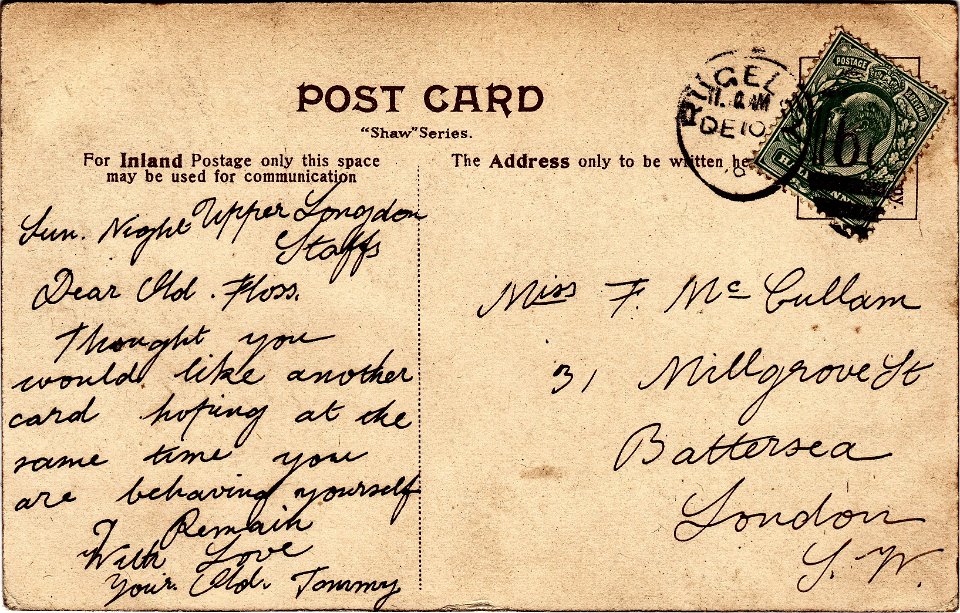 POST CARD
"Shaw" Series.
For Inland Postage only this space
may be used for communication
The Address only to be written he
RUGEL
DE 10
POSTAGE
Upper Longdon
Staffs
Sun. Night
Dear Old. Floss.
Thought you
would like another
card hoping at the
same time you
are behaving yourself
I Remain
With Love
Your. Old. Tommy
Miss F. Mc Cullam
31 Millgrove St
Battersea
London
S. W.